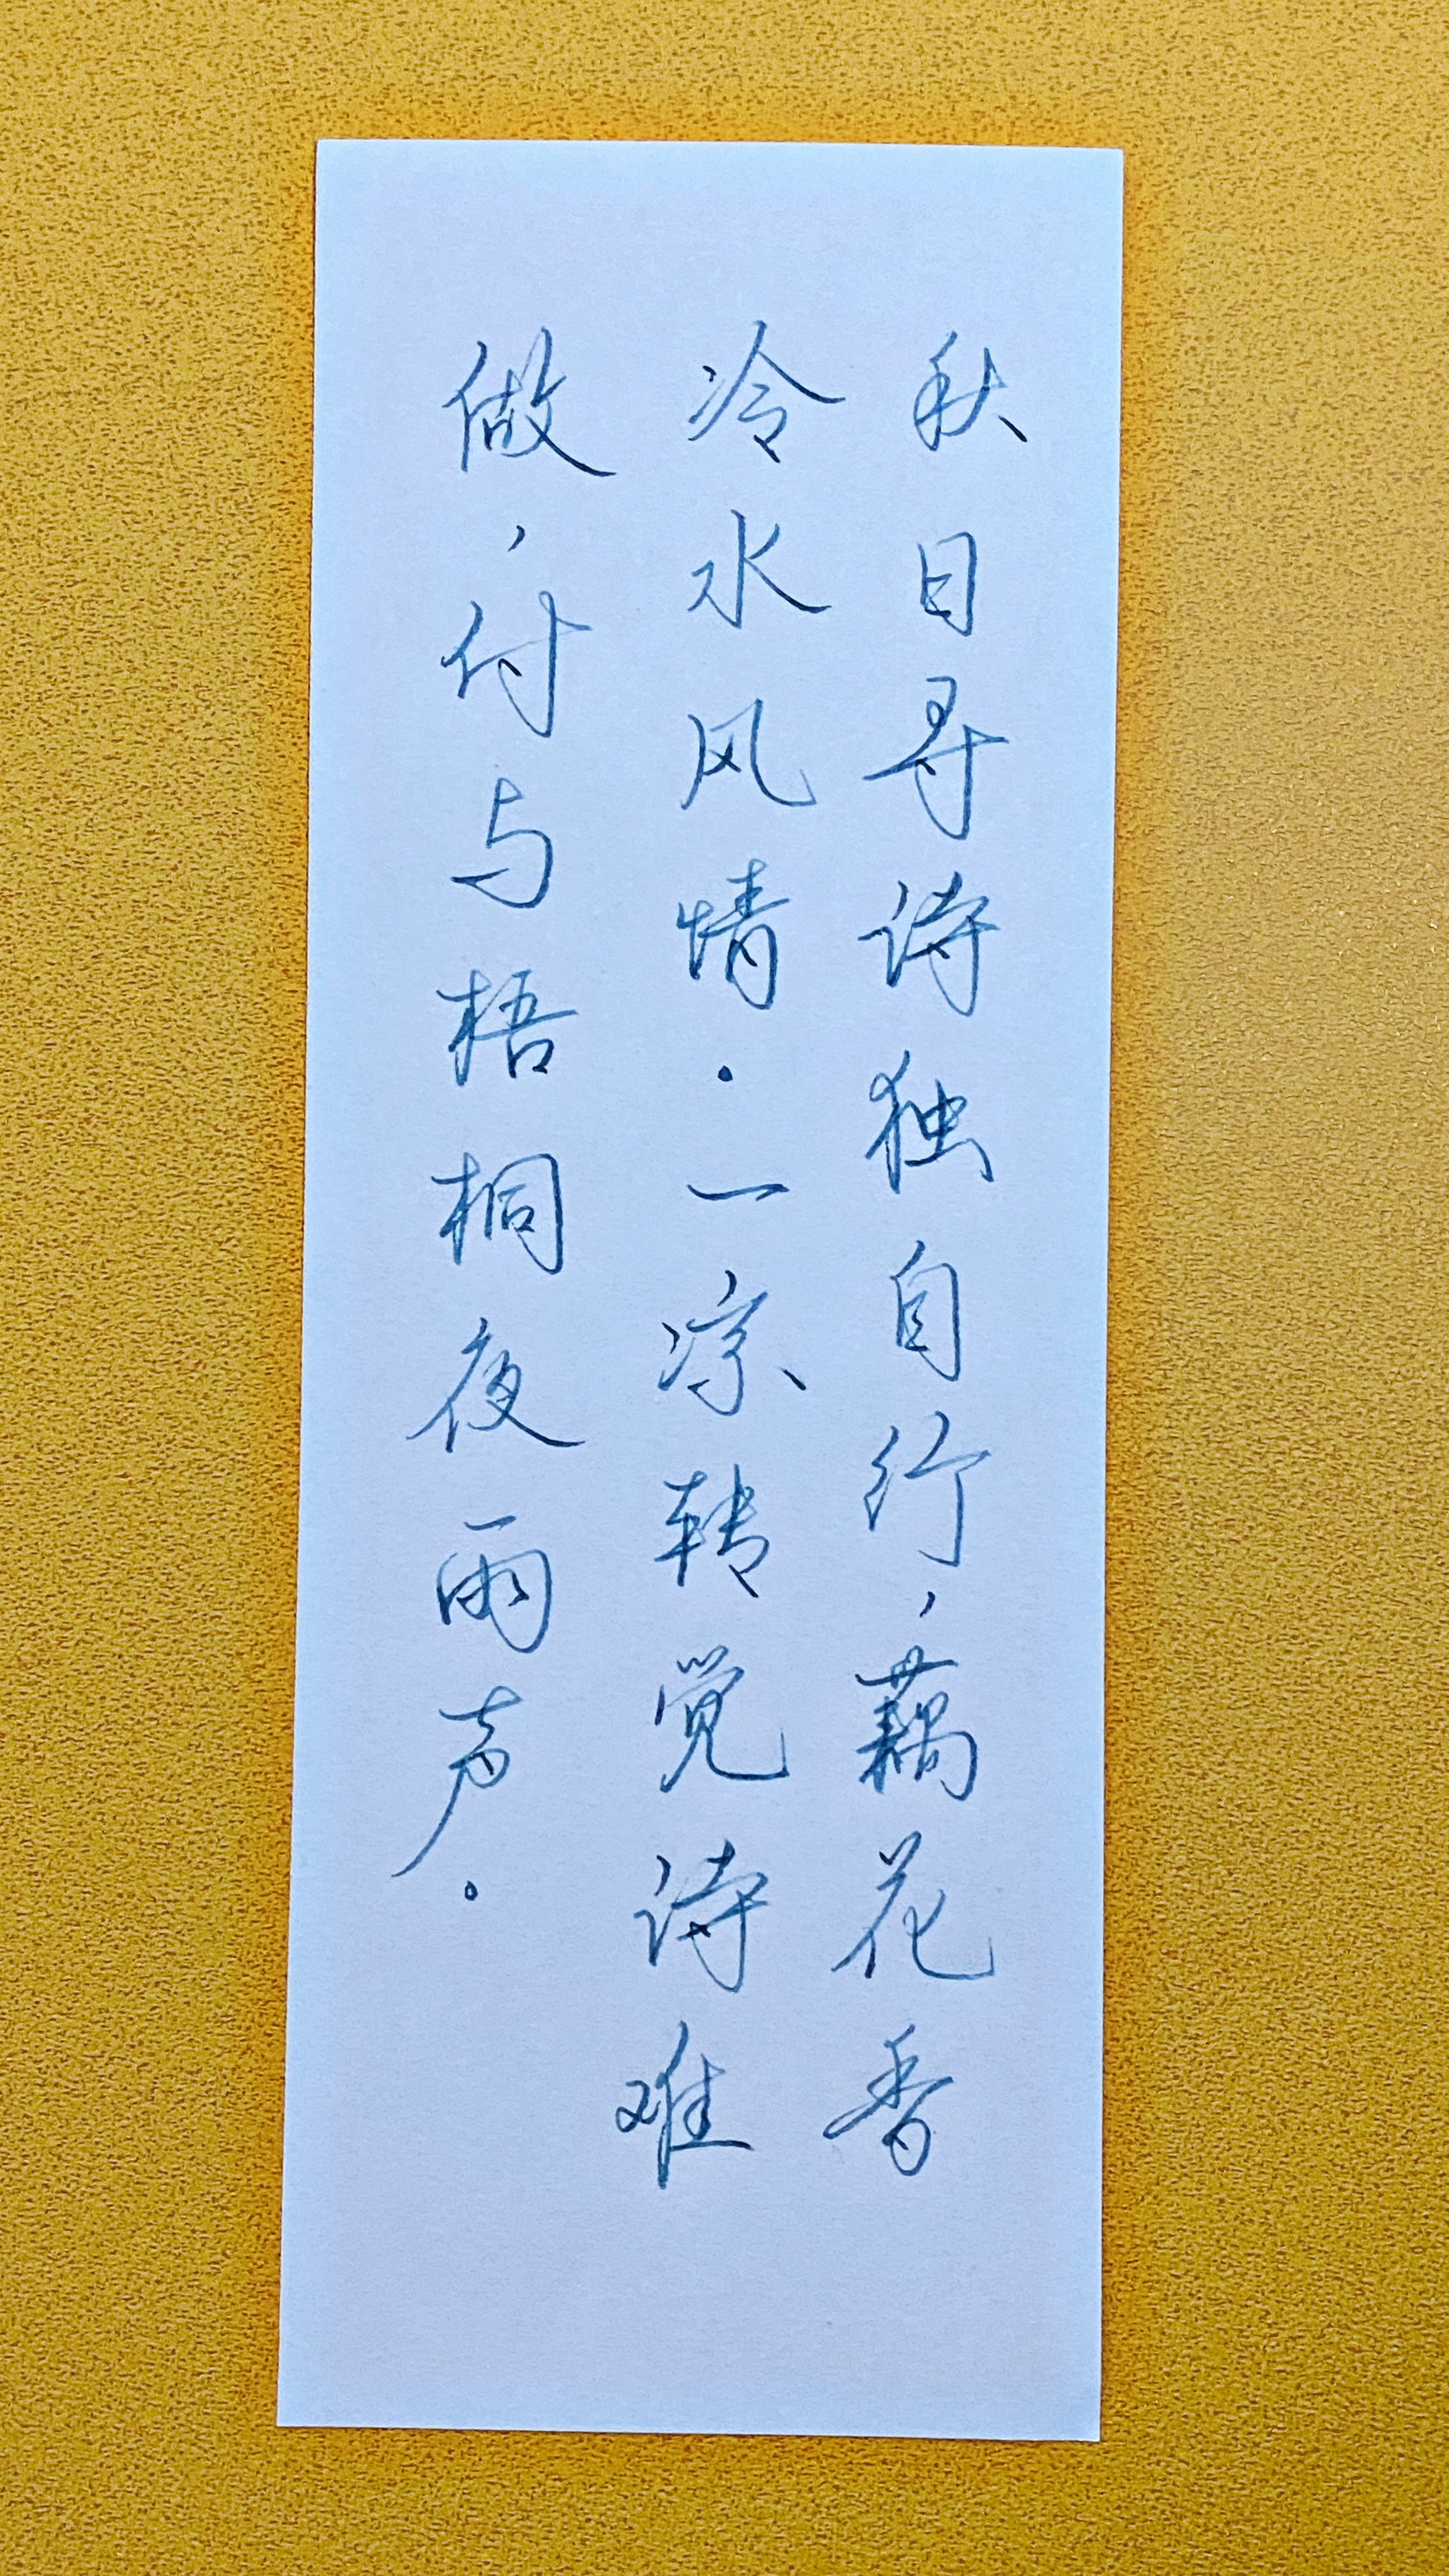 秋日寻诗独自行，藕花香
冷水风情。一凉转觉诗难
做，付与梧桐夜雨声。